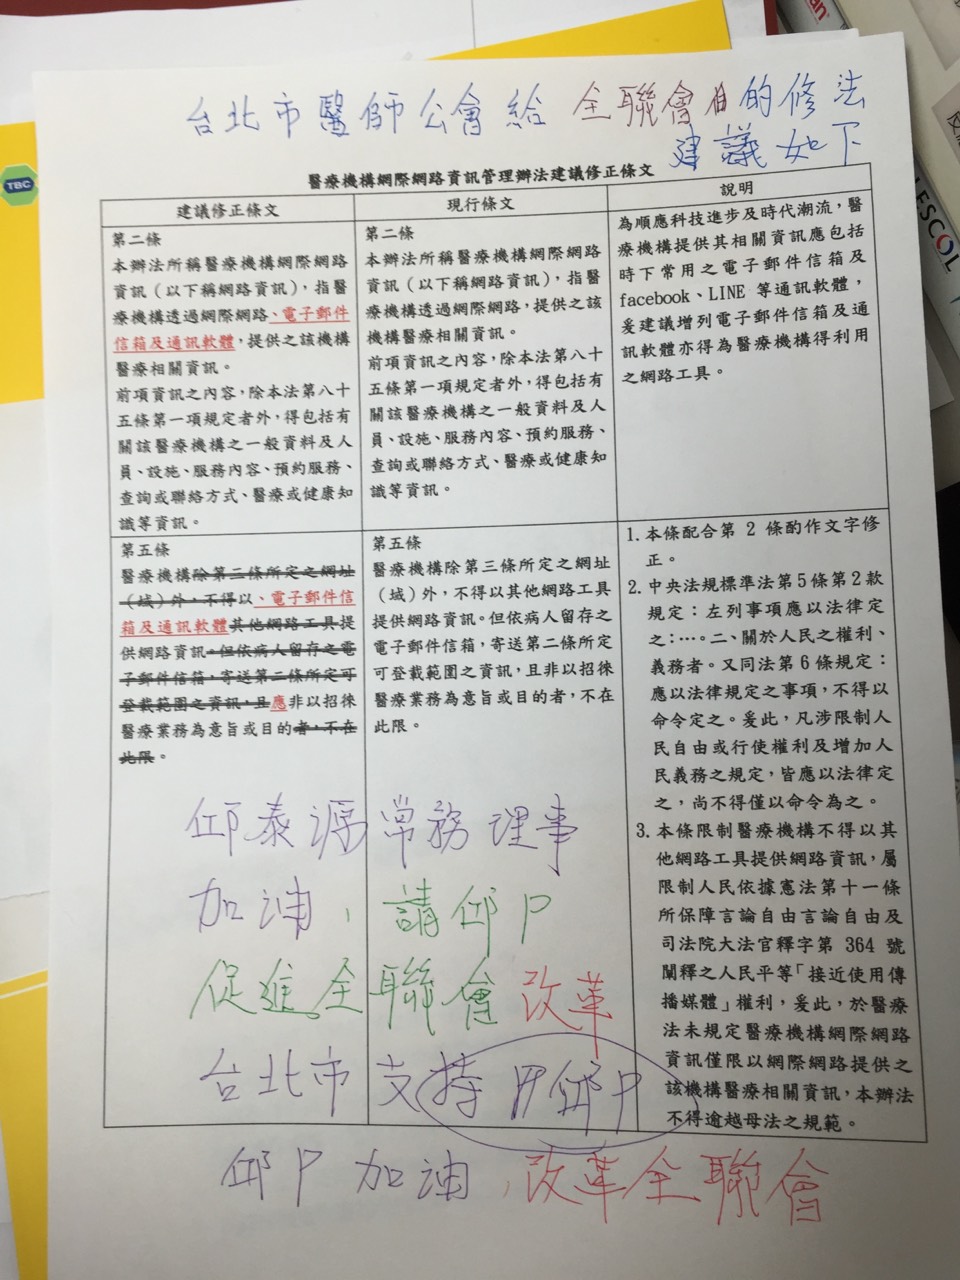 台北市醫師公會給全聯會的修法
建議如下
醫療機構網際網路資訊管理辦法建議修正條文
建議修正條文
第二條
本辦法所稱醫療機構網際網路
資訊（以下稱網路資訊），指醫
療機構透過網際網路、電子郵件
信箱及通訊軟體，提供之該機構
醫療相關資訊。
前項資訊之內容，除本法第八十
五條第一項規定者外，得包括有
關該醫療機構之一般資料及人
員、設施、服務內容、預約服務、
查詢或聯絡方式、醫療或健康知
識等資訊。
現行條文
第二條
本辦法所稱醫療機構網際網路
資訊（以下稱網路資訊），指醫
療機構透過網際網路，提供之該
機構醫療相關資訊。
前項資訊之內容，除本法第八十
五條第一項規定者外，得包括有
關該醫療機構之一般資料及人
員、設施、服務內容、預約服務、
查詢或聯絡方式、醫療或健康知
識等資訊。
說明
為順應科技進步及時代潮流，醫
療機構提供其相關資訊應包括
時下常用之電子郵件信箱及
facebook、LINE 等通訊軟體，
爰建議增列電子郵件信箱及通
訊軟體亦得為醫療機構得利用
之網路工具。
第五條
醫療機構除第三條所定之網址
（域）外，不得以、電子郵件信
箱及通訊軟體其他網路工具提
供網路資訊。但依病人留存之電
子郵件信箱，寄送第二條所定可
登載範圍之資訊，且應非以招徠
醫療業務為意旨或目的者，不在
此限。
第五條
醫療機構除第三條所定之網址
（域）外，不得以其他網路工具
提供網路資訊。但依病人留存之
電子郵件信箱，寄送第二條所定
可登載範圍之資訊，且非以招徠
醫療業務為意旨或目的者，不在
此限。
1. 本條配合第 2 條酌作文字修
正。
2. 中央法規標準法第5條第2款
規定：左列事項應以法律定
之：…。二、關於人民之權利、
義務者。又同法第6條規定：
應以法律規定之事項，不得以
命令定之。爰此，凡涉限制人
民自由或行使權利及增加人
民義務之規定，皆應以法律定
之，尚不得僅以命令為之。
3. 本條限制醫療機構不得以其
他網路工具提供網路資訊，屬
限制人民依據憲法第十一條
所保障言論自由言論自由及
司法院大法官釋字第 364 號
闡釋之人民平等「接近使用傳
播媒體」權利，爰此，於醫療
法未規定醫療機構網際網路
資訊僅限以網際網路提供之
該機構醫療相關資訊，本辦法
不得逾越母法之規範。
邱泰源常務理事
加油，請邱P
促進全聯會改革
台北市支持 邱P
邱P加油，改革全聯會
TBC
ESCOL